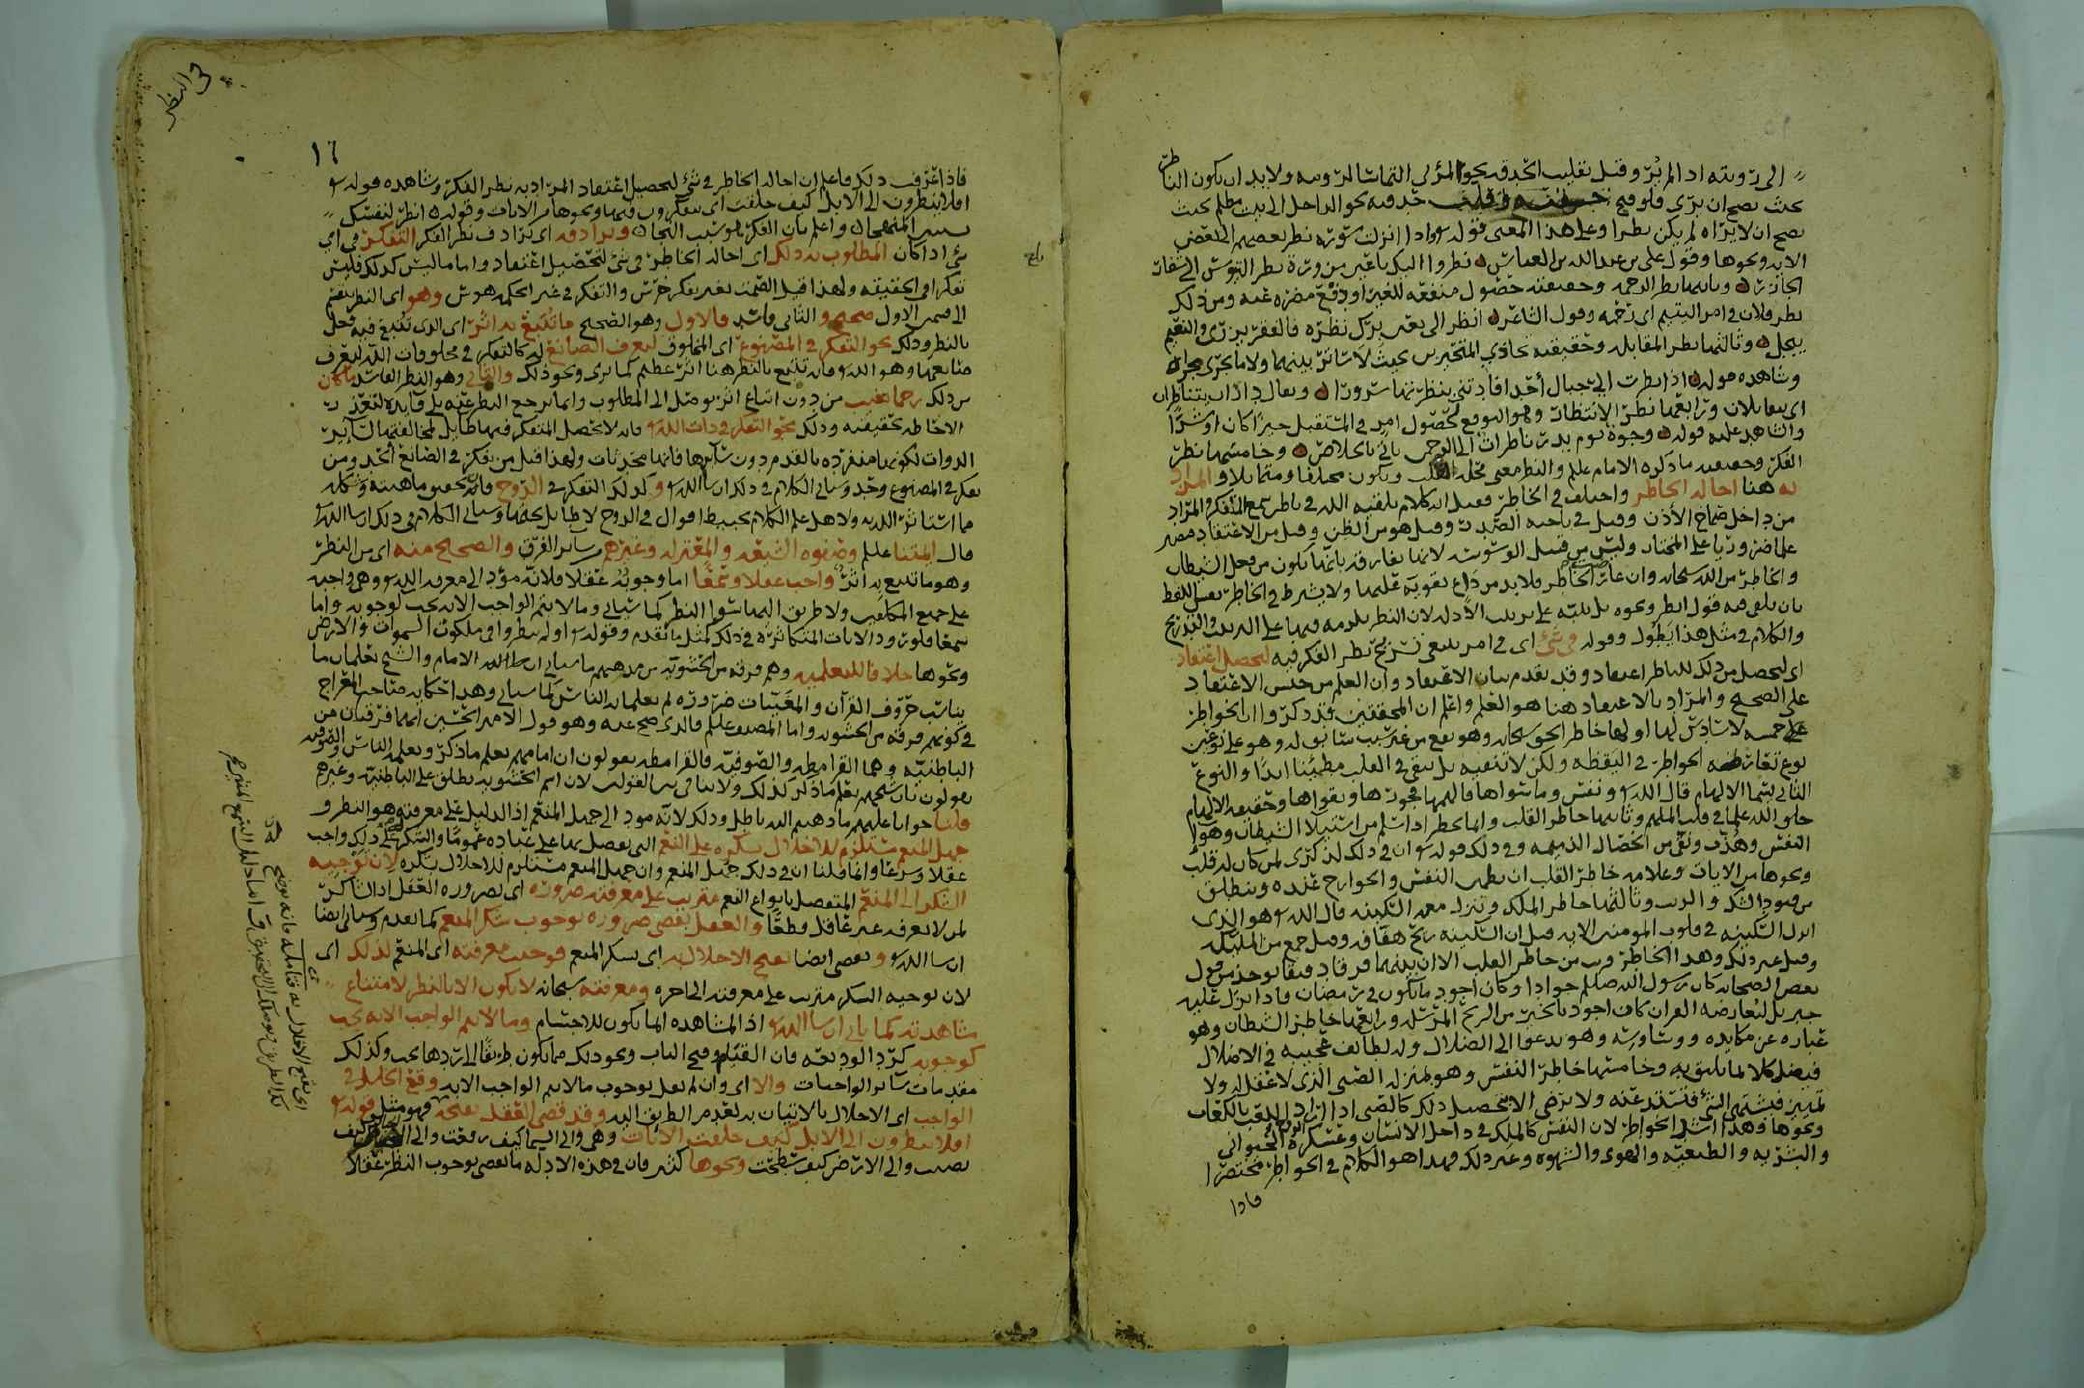 الى رؤيته اذا لم يُرَ وقيل تقليب الحدقة نحو المرئي التماسا لرؤيته ولا بد ان يكون الناظر
بحيث يصح ان يرى فلو فتح حدقته نحو الداخل الى بيت مظلم بحيث
يصح ان لا يراه لم يكن نظرا وعلى هذا المعنى قوله واذا ما انزلت سورة نظر بعضهم الى بعض
الآية ونحوها وقول علي بن عبد الله بن العباس نظروا اليك باعين مزورة نظر التيوس الى شفار
الجازر وثانيها نظر الرحمة وحقيقته حصول منفعة للغير او دفع مضرة عنه ومن ذلك
نظر فلان في امر اليتيم اي رحمه وقول الشاعر انظر الي بعين بِرّك نظرة فالفقر يزري والنعيم
يبجل وثالثها نظر المقابلة وحقيقته تحاذي المتحيزين بحيث لا ساتر بينهما ولا ما يجري مجراه
وشاهده قوله اذا نظرت الي جبال أحد افادتني بنظرتها سرورا ويقال داران يتناظران
اي يتقابلان ورابعها نظر الانتظار وهو التوقع لحصول امر في المستقبل خيرا كان او شرا
والشاهد عليه قوله وجوه يوم بدر ناظرات الى الرحمن يأتي بالخلاص وخامسها نظر
الفكر وحقيقته ما ذكره الامام علم والنظر معنى محله القلب ويكون مختلفا ومتماثلا والمراد
به هنا اجالة الخاطر واختلف في الخاطر فقيل انه كلام يلقيه الله في باطن سمع المتفكر والمراد
من داخل صماخ الأذن وقيل في ناحية الصدر وقيل هو من الظن وقيل من الاعتقاد
والخاطر من الله سبحانه وان عارض الخاطر فلا بد من داع تقويه عليهما ولا يشترط في الخاطر تعيين اللفظ
بان يلقي فيه قول انظر ونحوه بل ينبه على ترتيب الأدلة لان النظر يلزمه فيها على الترتيب والتدريج
والكلام في مثل هذا يطول وقوله في شيء اي في امر ينبغي نظر الفكر فيه لتحصيل اعتقاد
اي ليحصل من ذلك للناظر اعتقاد وقد تقدم بيان الاعتقاد وان العلم من جنس الاعتقاد
على الصحيح والمراد بالاعتقاد هنا هو العلم واعلم ان المحققين قد ذكروا ان الخواطر
على خمسة لا سادس لها اولها خاطر الحق سبحانه وهو يقع من غير سبب سابق له وهو على نوعين
نوع تعارضه الخواطر في اليقظة ولكن لا تنفيه بل يبقى في القلب مطمئنا ابدا والنوع
الثاني يسمى الالهام قال الله ونفس وما سواها فالهمها فجورها وتقواها وحقيقة الالهام
خلق الله علما في قلب الملهم وثانيها خاطر القلب وانما يخطر اذا سلم من استيلاء الشيطان وهوى
النفس وهُذب ونقي من الخصال الذميمة وفي ذلك قوله ان في ذلك لذكرى لمن كان له قلب
ونحوها من الآيات وعلامة خاطر القلب ان تطمئن النفس والجوارح عنده وينطلق
من قيود الشك والريب وثالثها خاطر الملك وتنزل معه السكينة قال الله هو الذي
انزل السكينة في قلوب المؤمنين الآية قيل ان السكينة ريح هفافة وقيل جمع من الملئكة
وقيل غير ذلك وهذا الخاطر قريب من خاطر القلب الا ان بينهما فرقا دقيقا يوخذ من قول
بعض الصحابة كان رسول الله صلعم جوادا وكان اجود ما يكون في رمضان فاذا نزل عليه
جبريل ليعارضه القرآن كان اجود بالخير من الريح المرسلة ورابعها خاطر الشيطان وهو
عبارة عن مكايده ووساوسه وهو يدعوا الى الضلال وله لطائف عجيبة في الاضلال
فيضل كلا بما يليق به وخامسها خاطر النفس وهو بمنزلة الصبي الذي لا عقل له ولا
تمييز فيشتهي الشيء فتشتد عنه ولا يرضى الا بتحصيل ذلك كالصبي اذا اراد اللعب بالكعاب
ونحوها وهذا اشد الخواطر لان النفس كالملك في داخل الانسان وعسكره الروح الحيواني
والبشرية والطبيعية والهوى والشهوة وغير ذلك فهذا هو الكلام في الخواطر مختصرا
فاذا
في النظر
١٦
فاذا عرفت ذلك فاعلم ان اجالة الخاطر في شيء لتحصيل اعتقاد المراد به نظر الفكر وشاهده قوله
افلا ينظرون الى الابل كيف خلقت اي يتفكرون فيها ونحوها من الآيات وقوله انظر لنفسك
واعلم بان الفكر هو سبب النجاة ويرادفه اي يرادف نظر الفكر التفكر في اي
شيء اذا كان المطلوب به ذلك اي اجالة الخاطر في شيء لتحصيل اعتقاد واما ما ليس كذلك فليس
تفكرا في الحقيقة ولهذا قيل الصمت بغير تفكر خرس والتفكر في غير الحكمة هوس وهو اي النظر ينقسم
الى قسمين الاول صحيح و الثاني فاسد فالاول وهو الصحيح ما تُتبع به اثر اي الذي تُتبع فيه
بالنظر وذلك نحو التفكر في المصنوع اي المخلوق ليعرف الصانع له كالتفكر في مخلوقات الله ليعرف
صانعها وهو الله فانه تتبع بالنظر هنا اثر عظيم كما يرى ونحو ذلك والثاني وهو النظر الفاسد ما كان
من ذلك رجما بغيب من دون اتباع اثر يوصل الى المطلوب وانما يرجع النظر عنه بلا فايدة لتعذر
الاحاطة بحقيقته وذلك نحو التفكر في ذات الله فانه لا يحصل المتفكر فيها طايل لمخالفتها لساير
الذوات لكونها منفردة بالقدم دون سائرها فانها محدثات ولهذا قيل من تفكر في الصانع ألحد ومن
تفكر في المصنوع وحّد وسياتي الكلام في ذلك ان شا الله وكذلك التفكر في الروح فانه تحقيق ماهيته وشكله
مما استاثر الله به ولاهل علم الكلام اقوال في الروح لا طايل تحتها وسياتي الكلام في ذلك ان شا الله
قال ايمتنا علم وصفوة الشيعة والمعتزلة وغيرهم من سائر الفرق والصحيح منه اي من النظر
وهو ما تتبع به اثر واجب عقلا وسمعا اما وجوبه عقلا فلانه مؤد الى معرفة الله وهي واجبة
على جميع المكلفين ولا طريق اليها سوى النظر كما سياتي وما لا يتم الواجب الا به يجب كوجوبه واما
سمعا فلورود الآيات المتكاثرة في ذلك كمثل ما تقدم وقوله اولم ينظروا في ملكوت السموات والارض
ونحوها خلافا للتعلمية وهم فرقة من الحشوية من مذهبهم ما سياتي ان شا الله الامام والشيخ يعلمان ما
يناسب حروف القرآن والمغيبات ضرورة ثم يعلمانه الناس كما سياتي وهذا حكاية صاحب المعراج
في كونهم فرقة من الحشوية واما المصنف علم فالذي صح عنه وهو قول الامير الحسين انهما فرقتان من
الباطنية وهما القرامطة والصوفية فالقرامطة يقولون ان امامهم يعلم ما ذكر ويعلمه الناس والصوفية
يقولون بان شيخهم يعلم ما ذكر كذلك ولا تنافي بين القولين لان اسم الحشوية يطلق على الباطنية وغيرهم
قلنا جوابا عليهم ما ذهبتم اليه باطل وذلك لانه مود الى جهل المنعم اذ الدليل على معرفته هو النظر و
جهل المنعم مستلزم للاخلال بشكره على النعم التي تفضل بها على عباده عموما والشكر على ذلك واجب
عقلا وسمعا وانما قلنا ان في ذلك جهل المنعم وان جهل المنعم مستلزم للاخلال بشكره لان توجيه
الشكر الى المنعم المتفضل بانواع النعم مترتب على معرفته ضرورة اي بضرورة العقل اذ الشاكر
لمن لا يعرفه غير عاقل قطعا والعقل يقضي ضرورة بوجوب شكر المنعم كما تقدم وسياتي ايضا
ان شا الله و يقضي ايضا بقبح الاخلال به اي بشكر المنعم فوجبت معرفته اي المنعم لذلك اي
لان توجيه الشكر مترتب على معرفته الى اخره ومعرفته سبحانه لا تكون الا بالنظر لامتناع
مشاهدته كما ياتي ان شا الله اذ المشاهدة انما تكون للاجسام وما لا يتم الواجب الا به يجب
كوجوبه كرد الوديعة فان القيام وفتح الباب ونحو ذلك مما يكون طريقا الى ردها يجب وكذلك
مقدمات سائر الواجبات والا اي وان لم نقل بوجوب ما لا يتم الواجب الا به وقع الخلل في
الواجب اي الاخلال بالاتيان به لعدم الطريق اليه وقد قضى العقل بقبحه فهو مثل قوله
افلا ينظرون الى الابل كيف خلقت الآيات وهي والى السما كيف رفعت والى الجبال كيف
نصبت والى الارض كيف سطحت ونحوها كثير فان في هذه الادلة ما يقضي بوجوب النظر عقلا
اي بقبح الاخلال به فتامله فانه يوضح